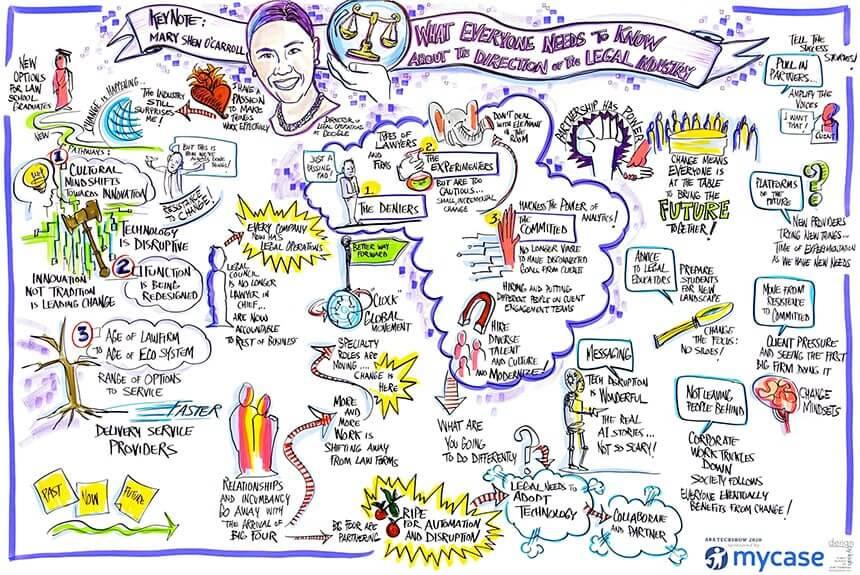 KEYNOTE:
MARY SHEN O'CARROLL
WHAT EVERYONE NEEDS TO KNOW
ABOUT THE DIRECTION OF THE LEGAL INDUSTRY
DIRECTOR OF
LEGAL OPERATIONS
GOOGLE
NEW
OPTIONS
FOR LAW
SCHOOL
GRADUATES
NOW
CHANGE IS HAPPENING...
THE INDUSTRY
STILL
SURPRISES
ME!
I HAVE A
PASSION
TO MAKE
THINGS
WORK EFFECTIVELY
PATHWAYS:
1
CULTURAL
MINDSHIFTS
TOWARDS INNOVATION
BUT THIS IS
HOW WE'VE
ALWAYS DONE
THINGS!
RESISTANCE
TO CHANGE!
TECHNOLOGY
IS DISRUPTIVE
INNOVATION
NOT TRADITION
IS LEADING CHANGE
2
FUNCTION
IS BEING
REDESIGNED
3
AGE OF LAW FIRM
TO AGE OF ECO SYSTEM
RANGE OF OPTIONS
TO SERVICE
FASTER
DELIVERY SERVICE
PROVIDERS
PAST
NOW
FUTURE
EVERY COMPANY
NOW HAS
LEGAL OPERATIONS
LEGAL
COUNCIL IS
NO LONGER
LAWYER
IN
CHIEF...
ARE NOW
ACCOUNTABLE
TO REST OF BUSINESS
RELATIONSHIPS
AND INCUMBANCY
GO AWAY WITH
THE ARRIVAL OF
BIG FOUR
BIG FOUR ARE
PARTNERING
MORE
AND
MORE
WORK IS
SHIFTING AWAY
FROM LAW FIRMS
SPECIALTY
ROLES ARE
MOVING....
CHANGE
IS
HERE
BETTER WAY
FORWARD
"CLOCK"
GLOBAL
MOVEMENT
TYPES OF
LAWYERS
AND FIRMS
JUST A
PASSING
FAD!
1.
THE DENIERS
2.
THE EXPERIMENTERS
BUT ARE TOO
CAUTIOUS...
SMALL, INCREMENTAL
CHANGE
DON'T DEAL
WITH ELEPHANT
IN THE
ROOM
3.
HARNESS THE POWER OF
ANALYTICS!
THE
COMMITTED
NO LONGER VIABLE
TO HAVE DISCONNECTED
GOALS FROM CLIENT
HIRING AND PUTTING
DIFFERENT PEOPLE ON CLIENT
ENGAGEMENT TEAMS
HIRE
DIVERSE
TALENT
AND CULTURE
AND MODERNIZE!
WHAT ARE
YOU GOING
TO DO DIFFERENTLY
?
RIPE
FOR AUTOMATION
AND DISRUPTION
LEGAL NEEDS TO
ADOPT
TECHNOLOGY
COLLABORATE
AND PARTNER
MESSAGING
TECH DISRUPTION
IS
WONDERFUL
THE REAL
AI STORIES...
NOT SO SCARY!
PARTNERSHIP HAS POWER
CHANGE MEANS
EVERYONE IS
AT THE TABLE
TO BRING THE
FUTURE
TOGETHER!
ADVICE
TO LEGAL
EDUCATORS
PREPARE
STUDENTS
FOR NEW
LANDSCAPE
CHANGE
THE FOCUS:
NO SILOES!
TELL THE
SUCCESS
STORIES!
PULL IN
PARTNERS...
AMPLIFY THE
VOICES
I WANT
THAT!
CLIENT
PLATFORMS
OF THE
FUTURE
?
NEW PROVIDERS
TRYING NEW THINGS...
TIME OF EXPERIMENTATION
AS WE HAVE NEW NEEDS
MOVE FROM
RESISTENCE
TO
COMMITTED
CLIENT PRESSURE
AND SEEING THE FIRST
BIG FIRM DOING IT
CHANGE
MINDSETS
NOT LEAVING
PEOPLE BEHIND
CORPORATE
WORK TRICKLES
DOWN
SOCIETY FOLLOWS
EVERYONE EVENTUALLY
BENEFITS FROM CHANGE!
ABA TECHSHOW 2020
sponsored by
mycase